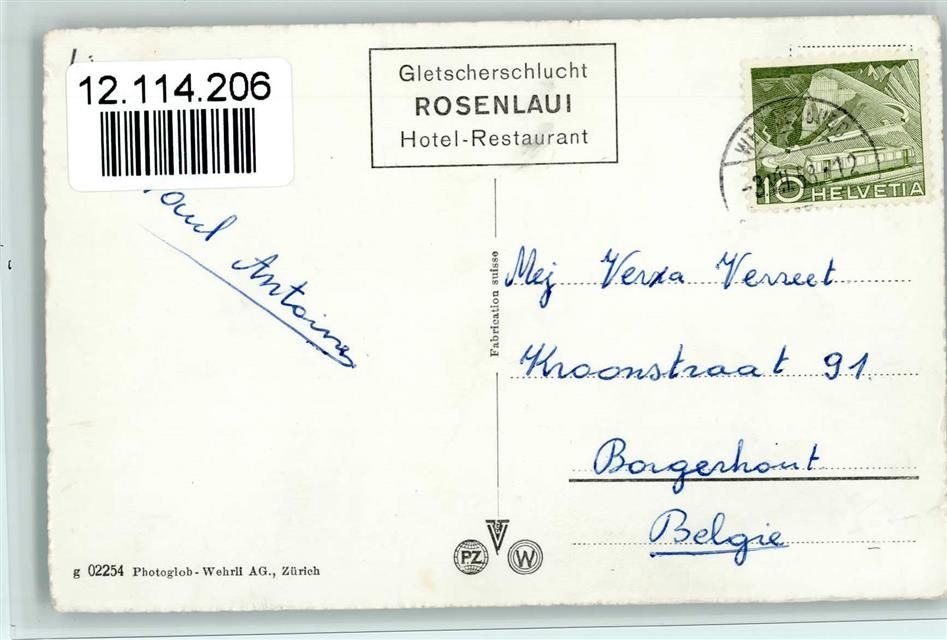 12.114.206
Gletscherschlucht
ROSENLAUI
Hotel-Restaurant
10 HELVETIA
Paul Antoine
Fabrication suisse
Mej Verxa Verreet
Kroonstraat 91
Borgerhout
Belgie
PZ W
g 02254 Photoglob-Wehrli AG., Zürich